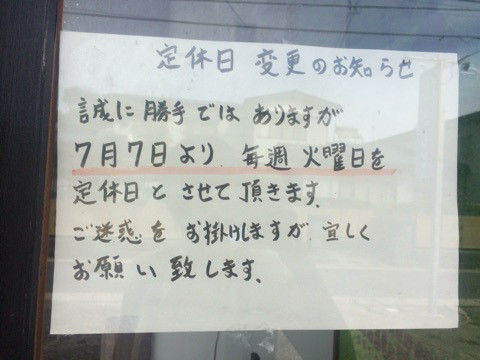 定休日 変更のお知らせ
誠に勝手ではありますが
7月7日より 毎週 火曜日を
定休日とさせて頂きます.
ご迷惑をお掛けしますが 宜しく
お願い致します.